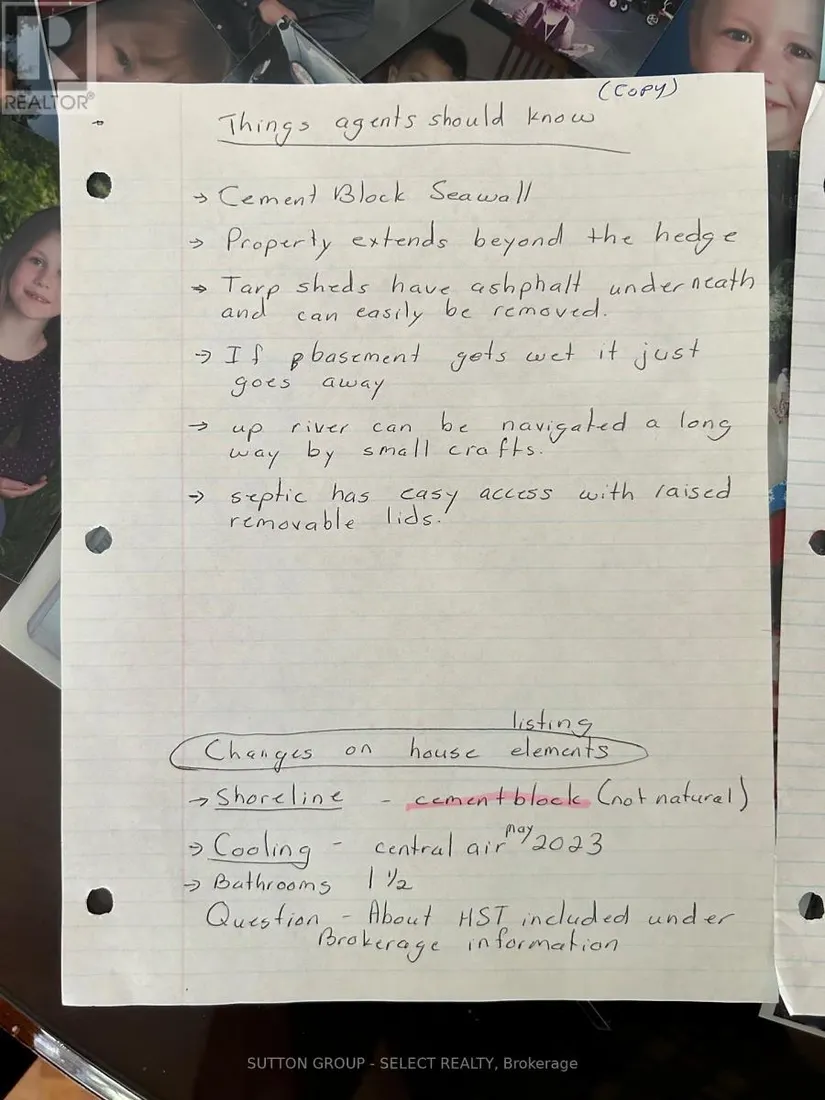 REALTOR®
(COPY)
Things agents should know
→ Cement Block Seawall
→ Property extends beyond the hedge
→ Tarp sheds have ashphalt underneath
and can easily be removed.
→ If basement gets wet it just
goes away
→ up river can be navigated a long
way by small crafts.
→ septic has easy access with raised
removable lids.
listing
Changes on house elements
→ Shoreline - cementblock (not natural)
→ Cooling - central air may 2023
→ Bathrooms 1 1/2
Question - About HST included under
Brokerage information
SUTTON GROUP - SELECT REALTY, Brokerage